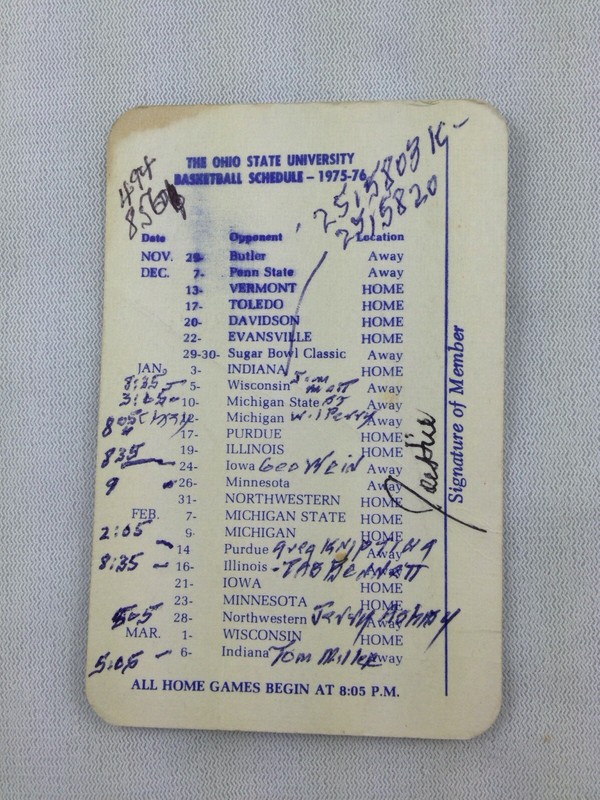 THE OHIO STATE UNIVERSITY
BASKETBALL SCHEDULE – 1975-76
494
8560
2515803 K-
2515820
Date Opponent Location
NOV. 29- Butler Away
DEC. 7- Penn State Away
13- VERMONT HOME
17- TOLEDO HOME
20- DAVIDSON HOME
22- EVANSVILLE HOME
29-30- Sugar Bowl Classic Away
JAN. 3- INDIANA HOME
8:35 5- Wisconsin Away
3:05 10- Michigan State Away
805 12- Michigan Wil Perry Away
17- PURDUE HOME
19- ILLINOIS HOME
835 24- Iowa Geo Wein Away
9 26- Minnesota Away
31- NORTHWESTERN HOME
FEB. 7- MICHIGAN STATE HOME
9- MICHIGAN HOME
2:05 14 Purdue Greg Away
8:35 - 16- Illinois - Bennett
21- IOWA HOME
23- MINNESOTA HOME
505 28- Northwestern Jerry Away
MAR. 1- WISCONSIN HOME
5:05 - 6- Indiana Tom Miller Away
ALL HOME GAMES BEGIN AT 8:05 P.M.
Signature of Member